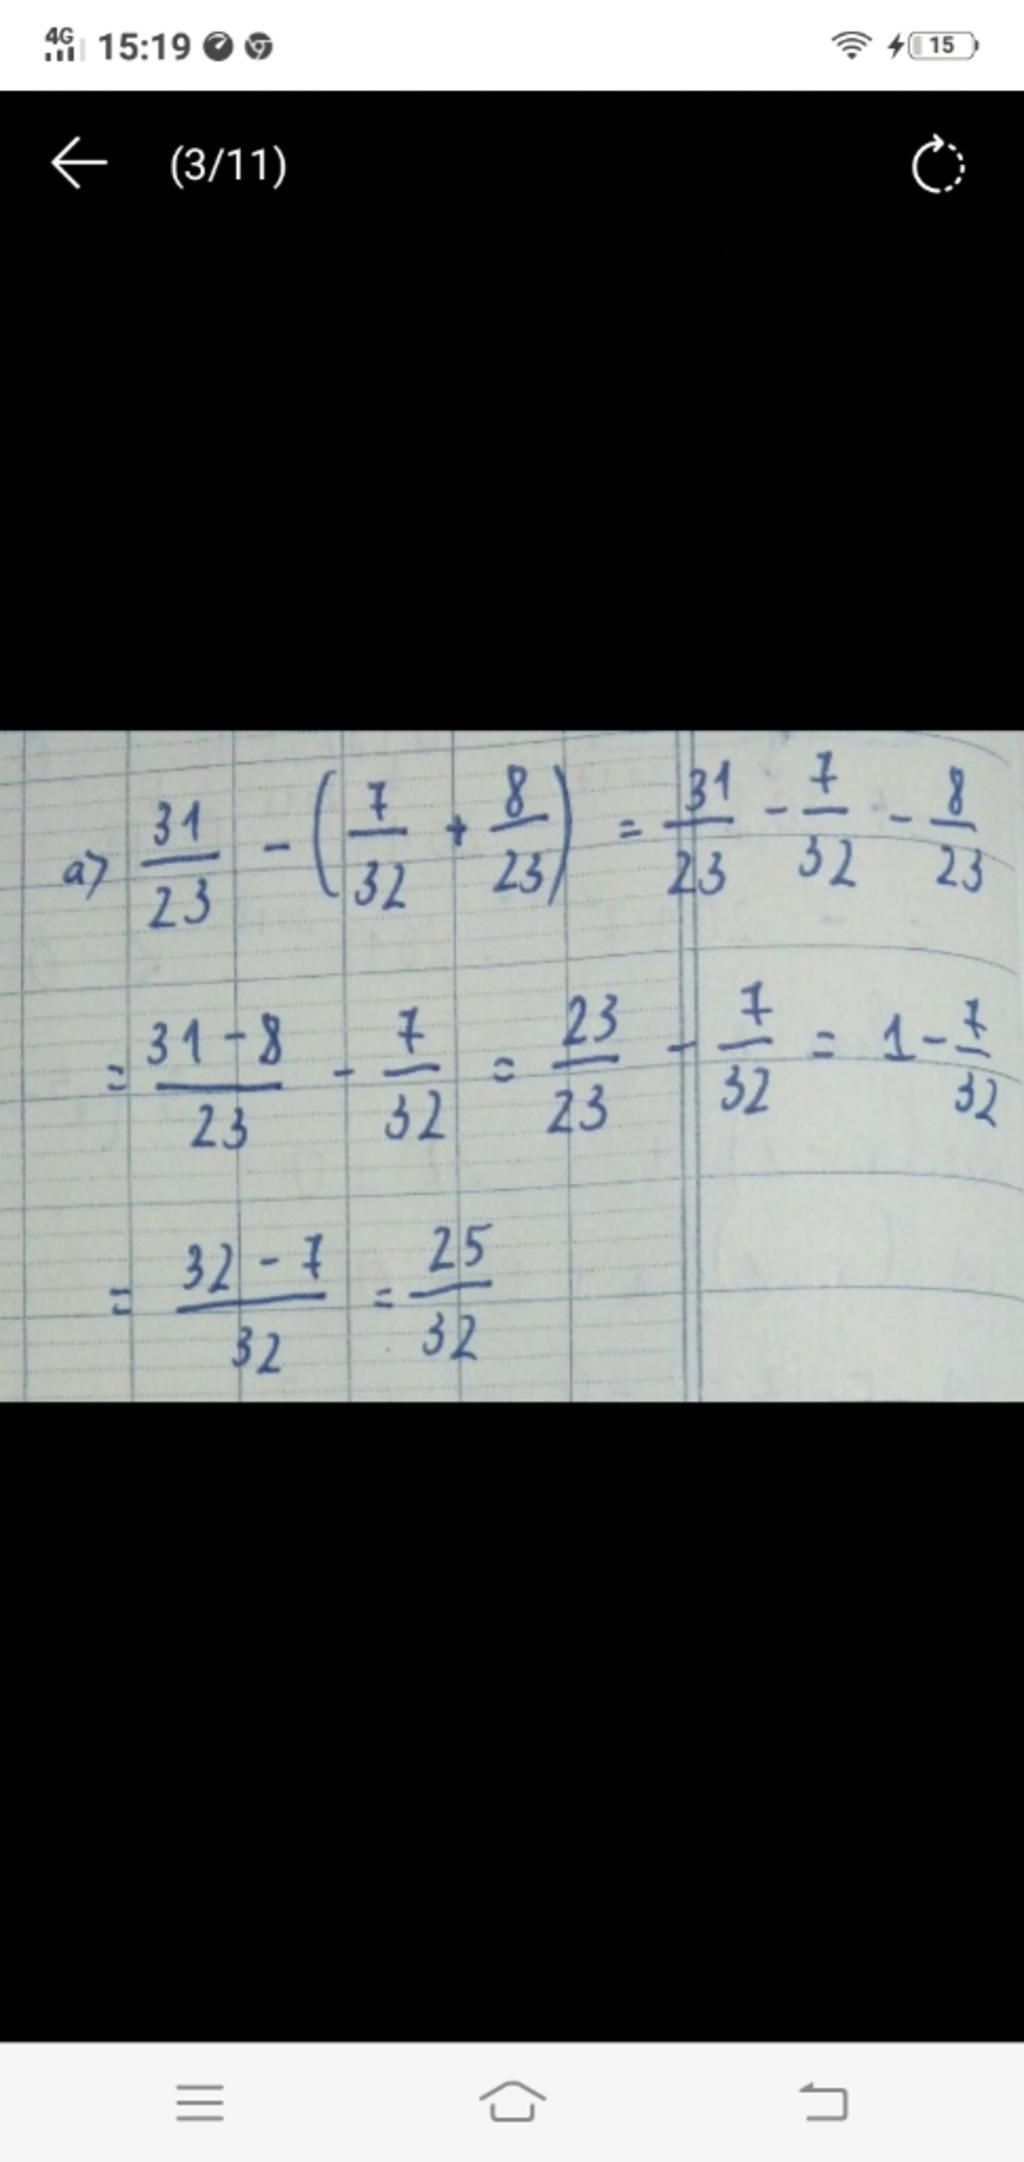 4G 15:19 15
(3/11)
a) 31/23 - (7/32 + 8/23) = 31/23 - 7/32 - 8/23
= 31-8/23 - 7/32 = 23/23 - 7/32 = 1 - 7/32
= 32-7/32 = 25/32